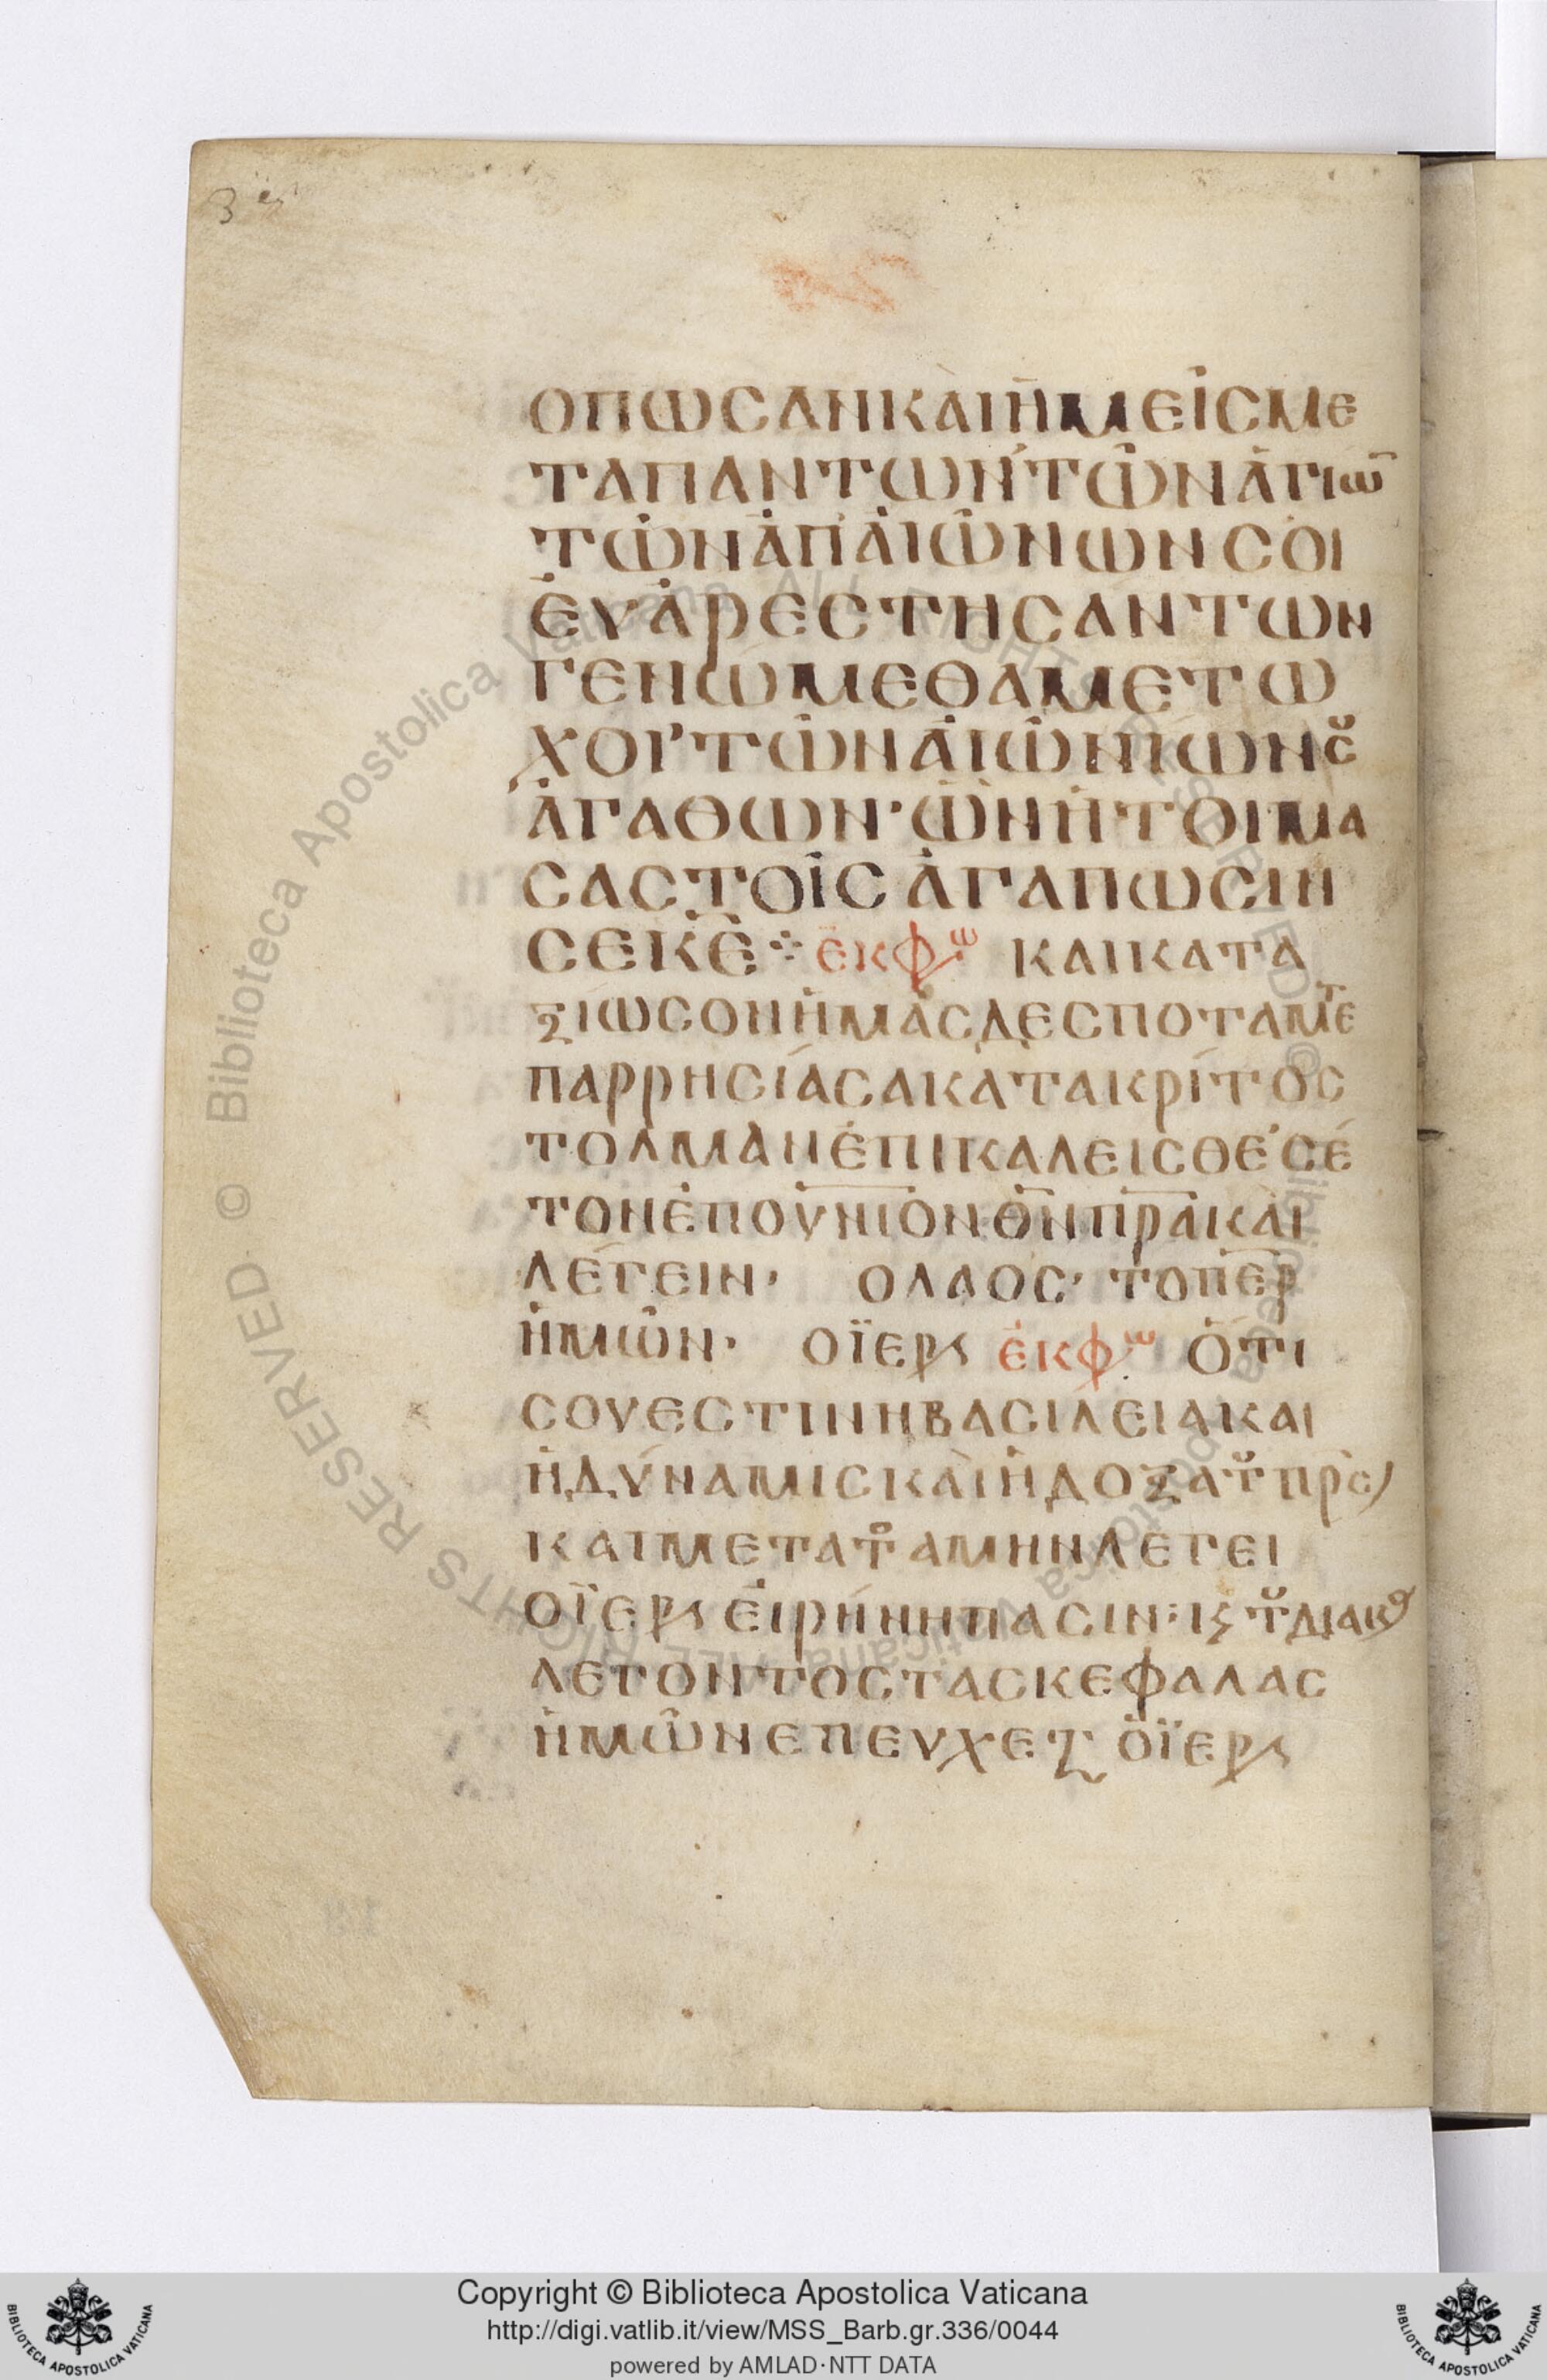 ΟΠΩСΑΝΚΑΙΗΜΕΙСΜΕ
ΤΑΠΑΝΤΩΝΤΩΝΑΓΙΩ̅
ΤΩΝΑΠΑΙΩΝΩΝСΟΙ
ΕΥΑΡΕСΤΗСΑΝΤΩΝ
ΓΕΝΩΜΕΘΑΜΕΤΩ
ΧΟΙΤΩΝΑΙΩΝΙΩΝСȣ
ΑΓΑΘΩΝ·ΩΝΗΤΟΙΜΑ
СΑСΤΟΙСΑΓΑΠΩСΙΝ
СΕΚ̅Ε̅ ⁘ ΕΚΦΩ ΚΑΙΚΑΤΑ
ΞΙΩСΟΝΗΜΑСΔΕСΠΟΤΑΜΤΕ
ΠΑΡΡΗСΙΑСΑΚΑΤΑΚΡΙΤΟС
ΤΟΛΜΑΝΕΠΙΚΑΛΕΙСΘΕСΕ
ΤΟΝΕΠΟΥ̅Ν̅ΙΟΝΘ̅Ν̅Π̅Ρ̅ΑΚΑΙ
ΛΕΓΕΙΝ· ΟΛΑΟС· ΤΟΠ̅Ε̅Ρ̅
ΗΜΩΝ· ΟΪΕΡϚ ΕΚΦΩ ΟΤΙ
СΟΥΕСΤΙΝΗΒΑСΙΛΕΙΑΚΑΙ
ΗΔΥΝΑΜΙСΚΑΙΗΔΟΞΑΤȣΠΡС)
ΚΑΙΜΕΤΑΤΟΑΜΗΝΛΕΓΕΙ
ΟΪΕΡϚΕΙΡΗΝΗΠΑСΙΝ:ΚϚΤȣΔΙΑΚΟ
ΛΕΓΟΝΤΟСΤΑСΚΕΦΑΛΑС
ΗΜΩΝΕΠΕΥΧΕΤ ΟΪΕΡϚ
Copyright © Biblioteca Apostolica Vaticana
http://digi.vatlib.it/view/MSS_Barb.gr.336/0044
powered by AMLAD·NTT DATA
BIBLIOTECA APOSTOLICA VATICANA
BIBLIOTECA APOSTOLICA VATICANA
© Biblioteca Apostolica Vaticana ALL RIGHTS RESERVED